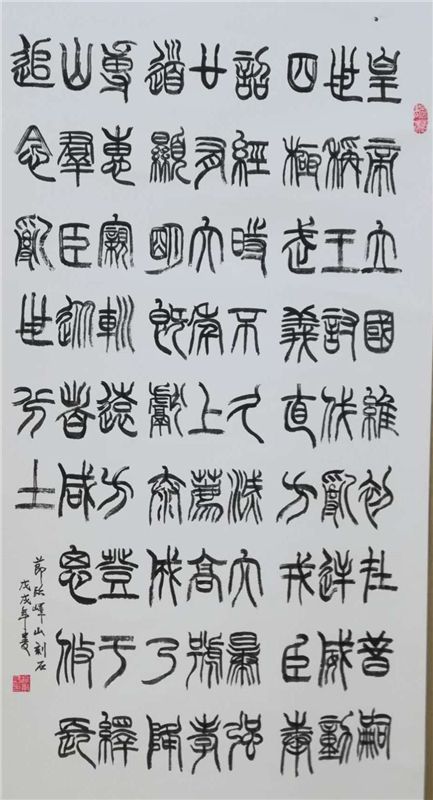 皇帝立國維初在昔嗣
世稱王討伐亂逆威動
四極武義直方戎臣奉
詔經時不久滅六暴強
廿有六年上薦高號孝
道顯明既獻泰成乃降
專惠寴巡遠方登于繹
山羣臣從者咸思攸長
追念亂世分土
節臨嶧山刻石
戊戌年夏